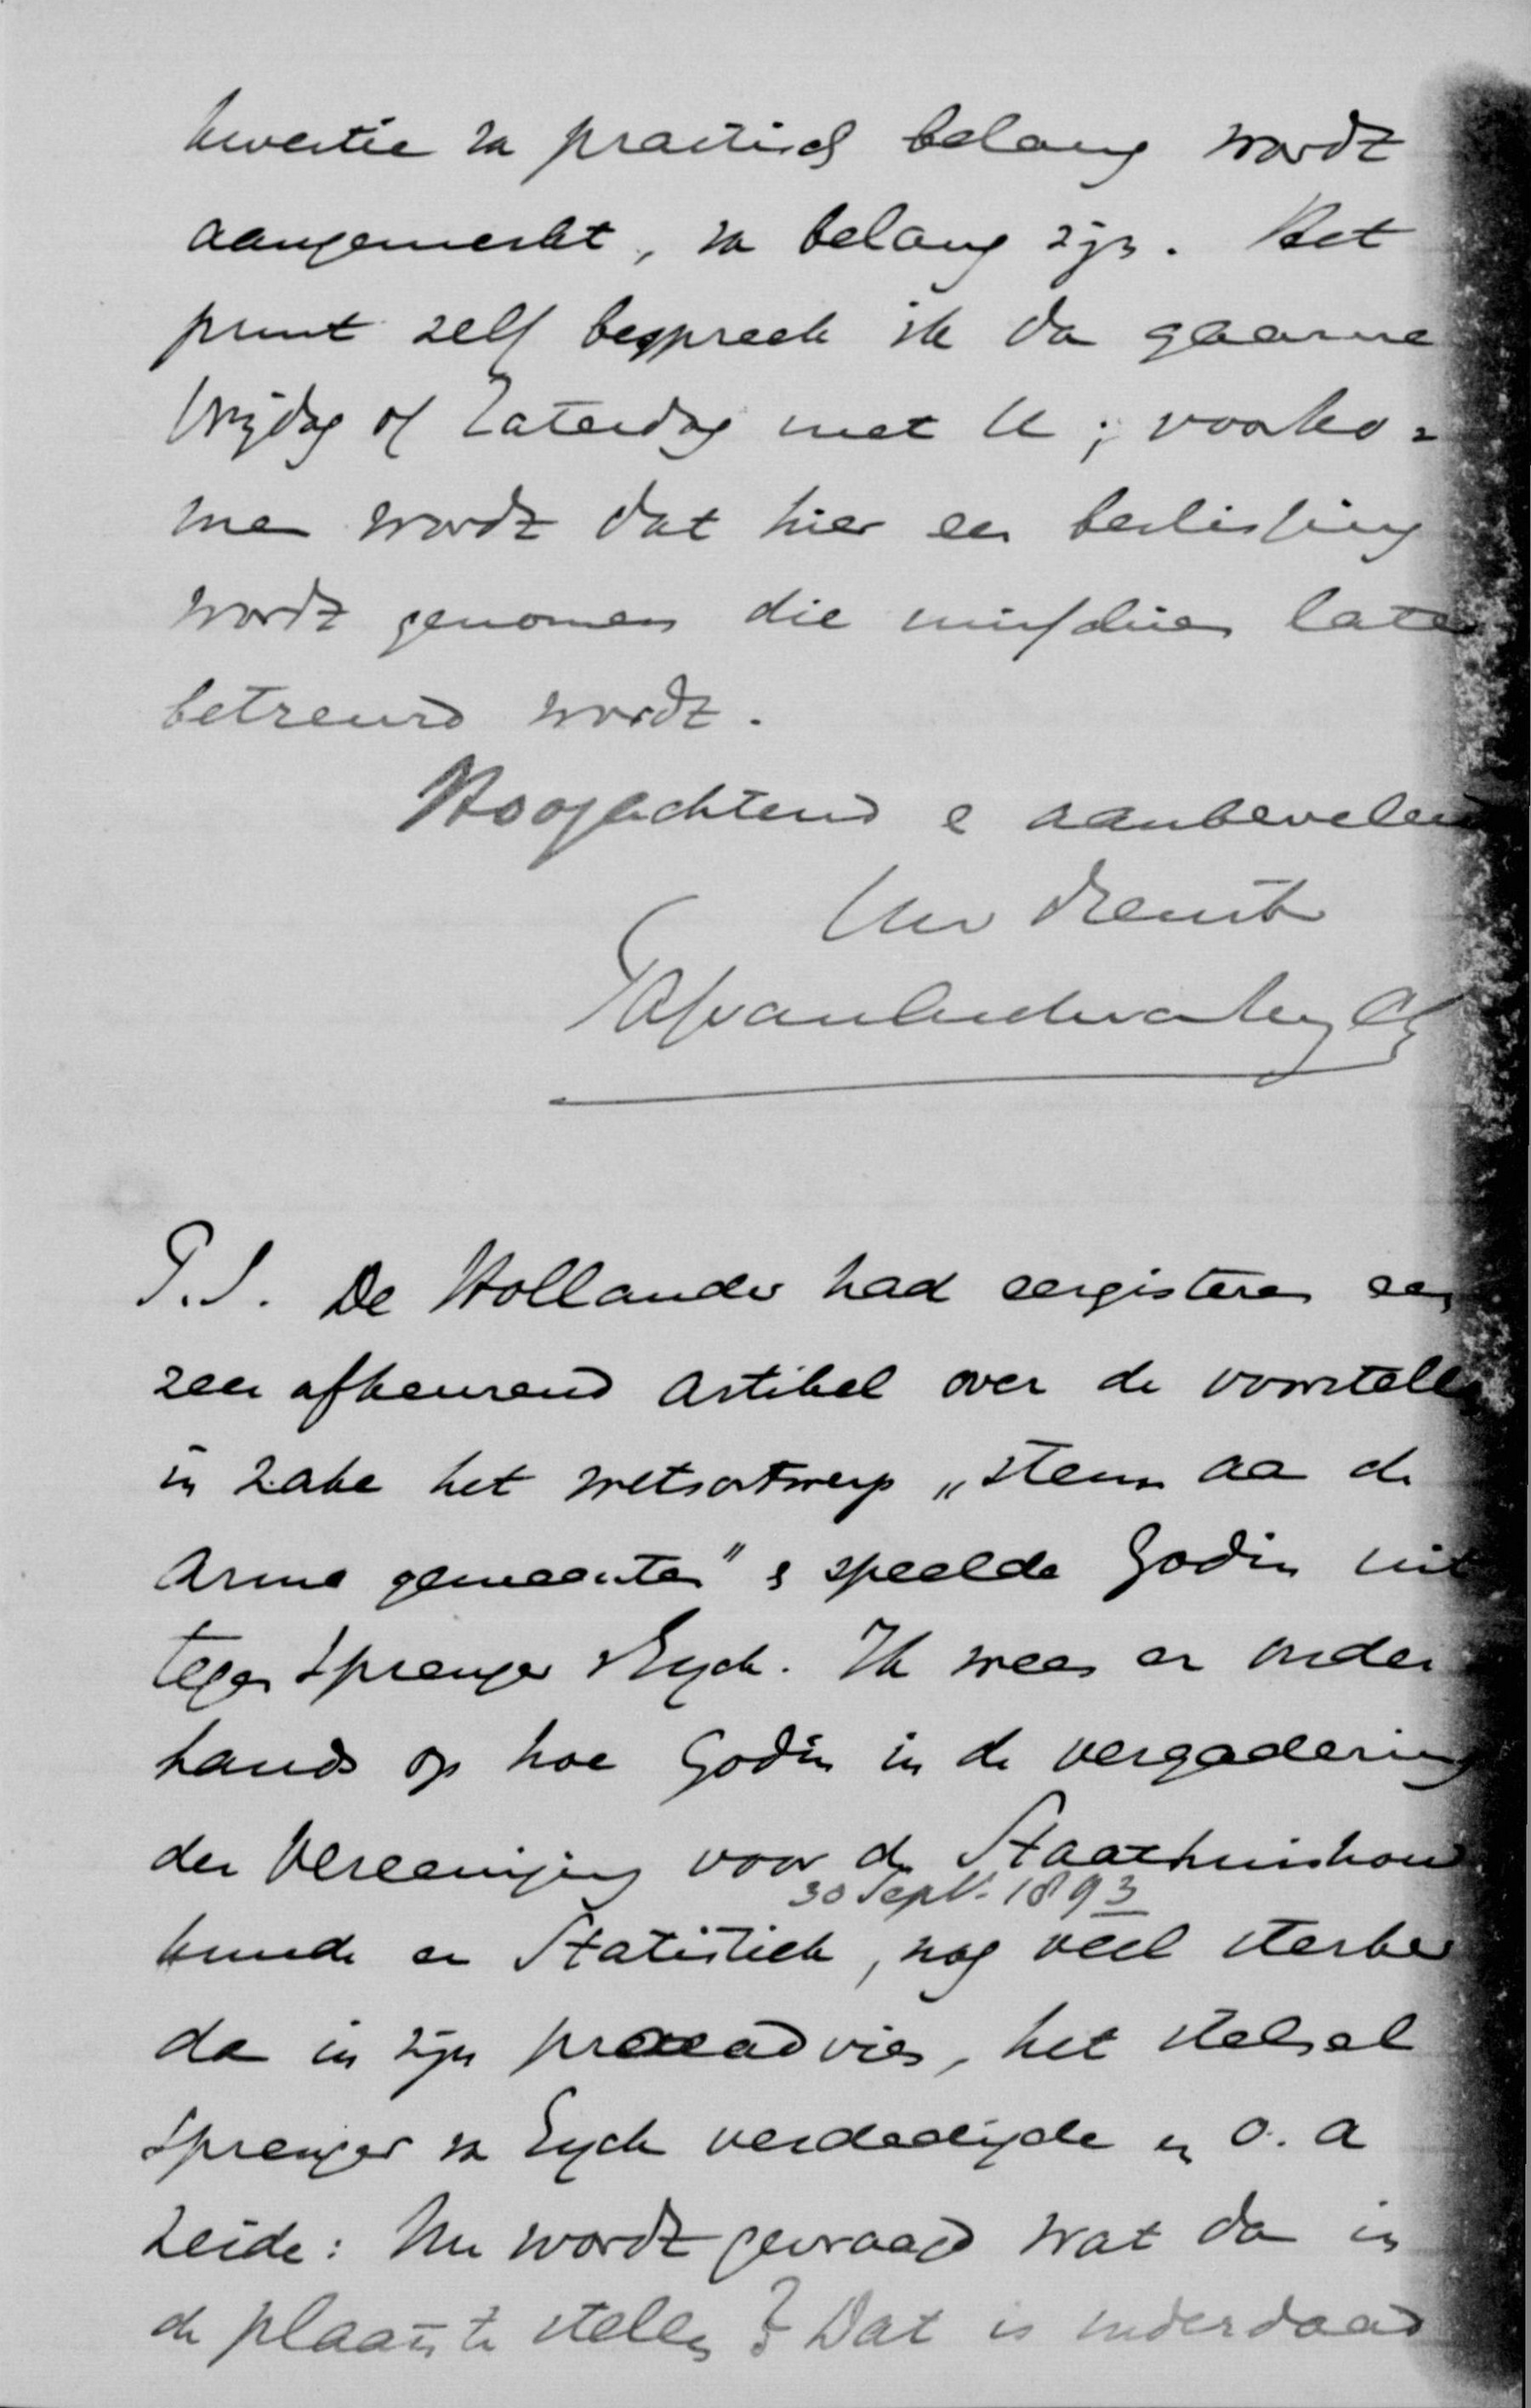 kwestie va practisch belang wordt
aangemerkt, va belang zijn. Het
punt zelf bespreek ik da gaarne
Vrijdag of Zaterdag met U; voorko=
men wordt dat hier een beslissing
wordt genomen die misschien later
betreurd wordt.
Hoogachtend e aanbevelend
Uw dienstv
P.S. De Hollander had eergisteren een
zeer afkeurend artikel over de voorstellen
in zake het wetsontwerp „steun aa de
arme gemeenten" & speelde Godin uit
tegen Sprenger v Eyck. Ik wees er onder
hands op hoe Godin in de vergadering
der Vereeniging voor de Staathuishoud
30 Sept. 1893
kunde en Statistiek, nog veel sterker
da in zijn praeadvies, het stelsel
Sprenger va Eyck verdedigde en o.a
zeide: Nu wordt gevraagd wat da in
de plaats te stellen? Dat is inderdaad